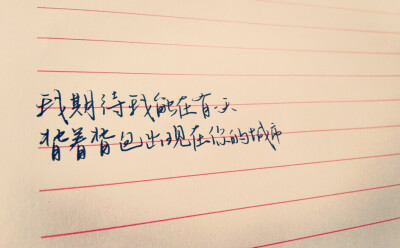 我期待我能在有天
背着背包出现在你的城市